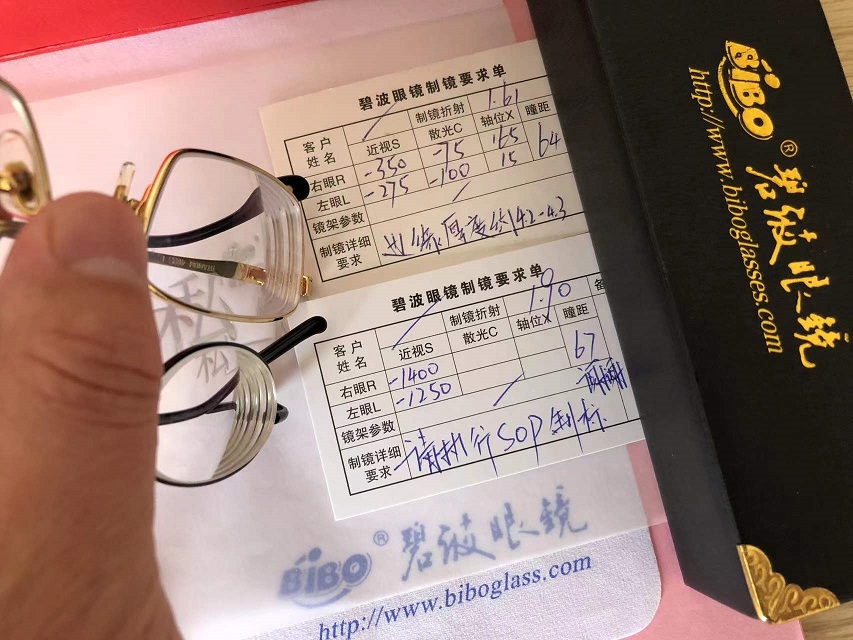 碧波眼镜制镜要求单
客户姓名 制镜折射 1.61
近视S 散光C 轴位X 瞳距
右眼R -350 -75 165 64
左眼L -275 -100 15
镜架参数
制镜详细要求 边缘厚度 4.2-4.3
碧波眼镜制镜要求单
客户姓名 制镜折射 1.90 备
近视S 散光C 轴位X 瞳距
右眼R -1400 67
左眼L -1250
镜架参数
制镜详细要求 请执行SOP制标
BIBO® 碧波眼镜
http://www.biboglass.com
BIBO® 碧波眼镜
http://www.biboglasses.com